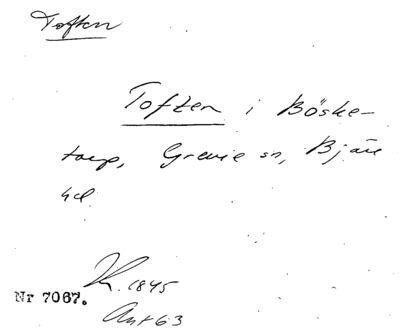 Toften
Toften i Böske-
torp, Grevie sn, Bjäre
hd
K. 1845
Nr 7067.
Akt 63